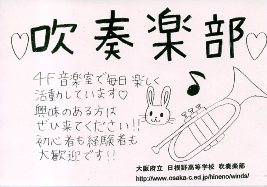 ♡吹奏楽部♡
4F音楽室で毎日楽しく
活動しています♡
興味のある方は
ぜひ来てください!!
初心者も経験者も
大歓迎です!!
大阪府立 日根野高等学校 吹奏楽部
http://www.osaka-c.ed.jp/hineno/winds/